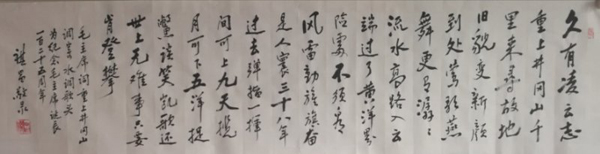 久有凌云志
重上井冈山千
里来尋故地
旧貌变新颜
到处莺歌燕
舞更有潺々
流水高路入云
端过了黄洋界
险处不须看
风雷动旌旗奋
是人寰三十八年
过去弹指一挥
间可上九天揽
月可下五洋捉
鳖谈笑凯歌还
世上无难事只要
肯登攀
毛主席词重上井冈山
调寄水调歌头
为纪念毛主席诞辰
一百二十五周年